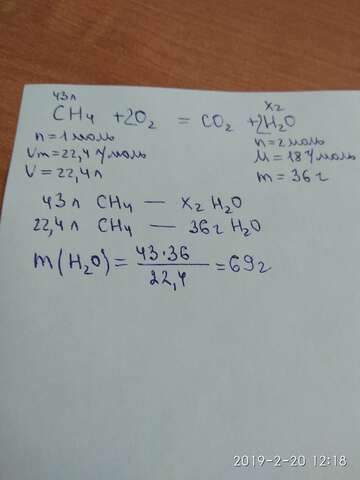 43л                                        x г
CH₄ + 2O₂ = CO₂ + 2H₂O
n = 1 моль                         n = 2 моль
Vm = 22,4 л/моль              M = 18 г/моль
V = 22,4 л                           m = 36 г
43 л CH₄ — x г H₂O
22,4 л CH₄ — 36 г H₂O
m(H₂O) = 43·36 / 22,4 = 69 г
2019-2-20 12:18